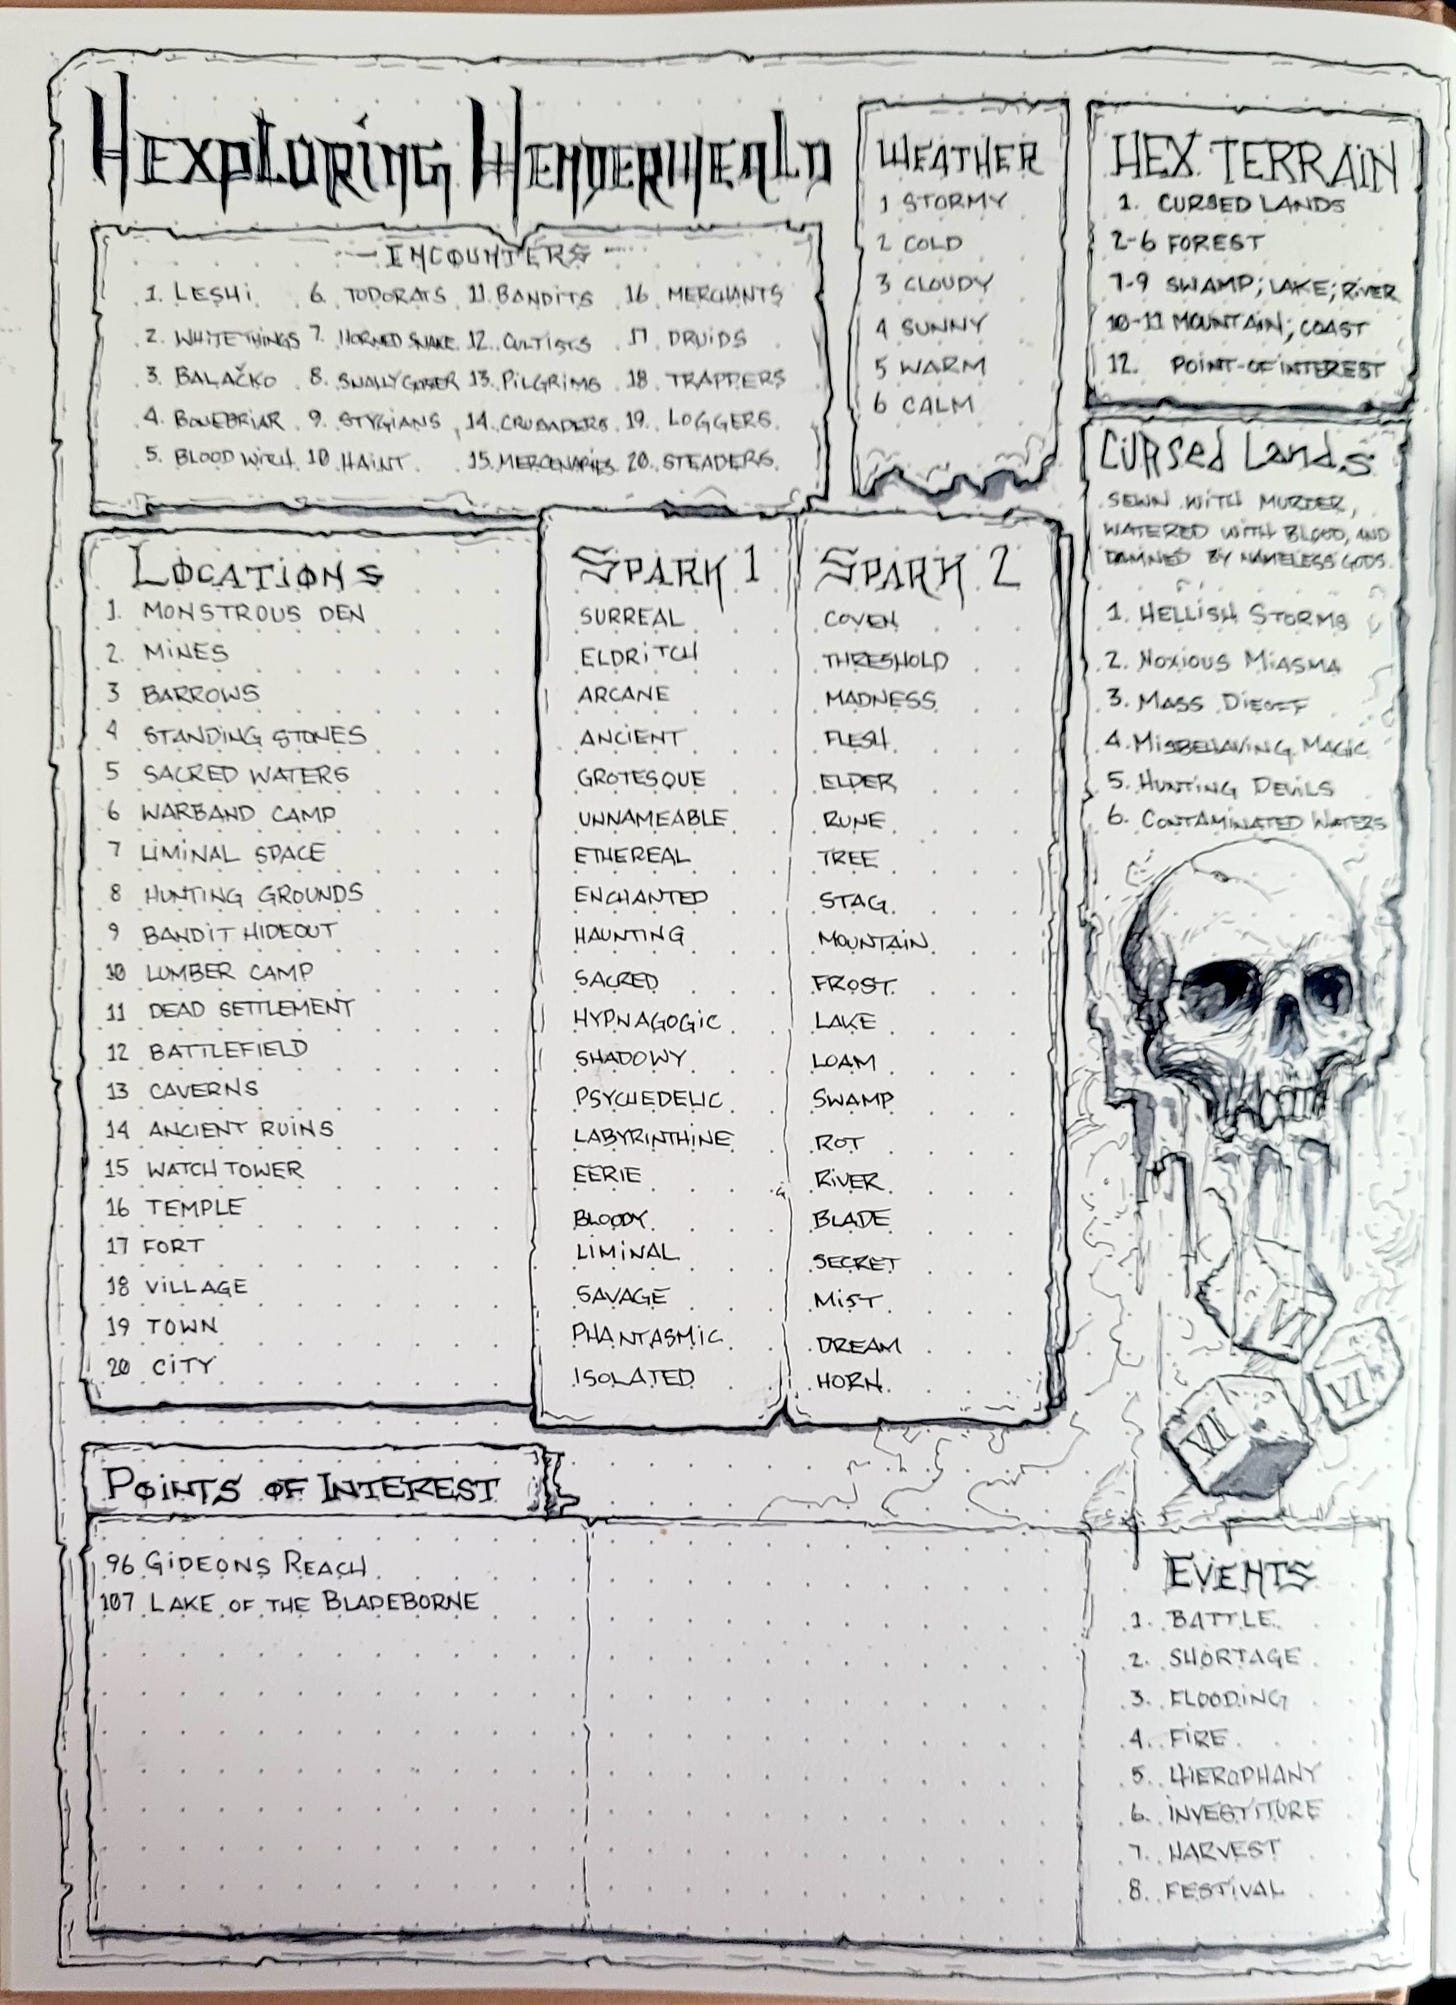 Hexploring Henderweald
Encounters
1. Leshi 6. Todorats 11. Bandits 16. Merchants
2. White Things 7. Horned Snake 12. Cultists 17. Druids
3. Balačko 8. Snallygoster 13. Pilgrims 18. Trappers
4. Bonebriar 9. Stygians 14. Crusaders 19. Loggers
5. Blood Witch 10. Haint 15. Mercenaries 20. Steaders
Weather
1 Stormy
2 Cold
3 Cloudy
4 Sunny
5 Warm
6 Calm
Hex Terrain
1. Cursed Lands
2-6 Forest
7-9 Swamp; Lake; River
10-11 Mountain; Coast
12. Point-of-Interest
Cursed Lands
Sewn with murder,
watered with blood, and
damned by nameless gods.
1. Hellish Storms
2. Noxious Miasma
3. Mass Dieoff
4. Misbehaving Magic
5. Hunting Devils
6. Contaminated Waters
Locations
1. Monstrous Den
2. Mines
3 Barrows
4 Standing Stones
5 Sacred Waters
6 Warband Camp
7 Liminal Space
8 Hunting Grounds
9 Bandit Hideout
10 Lumber Camp
11 Dead Settlement
12 Battlefield
13 Caverns
14 Ancient Ruins
15 Watch Tower
16 Temple
17 Fort
18 Village
19 Town
20 City
Spark 1
Surreal
Eldritch
Arcane
Ancient
Grotesque
Unnameable
Ethereal
Enchanted
Haunting
Sacred
Hypnagogic
Shadowy
Psychedelic
Labyrinthine
Eerie
Bloody
Liminal
Savage
Phantasmic
Isolated
Spark 2
Coven
Threshold
Madness
Flesh
Elder
Rune
Tree
Stag
Mountain
Frost
Lake
Loam
Swamp
Rot
River
Blade
Secret
Mist
Dream
Horn
VI
VI
VI
Points of Interest
96 Gideons Reach
107 Lake of the Bladeborne
Events
1. Battle
2. Shortage
3. Flooding
4. Fire
5. Hierophany
6. Investiture
7. Harvest
8. Festival